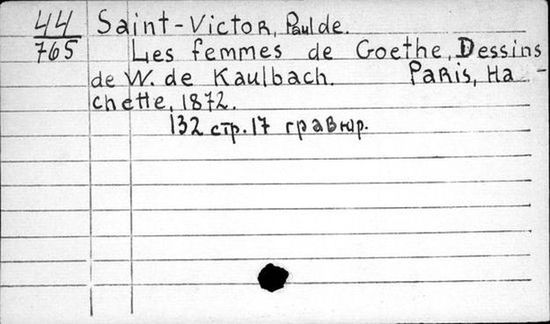 44 Saint-Victor, Paul de.
765 Les femmes de Goethe, Dessins
de W. de Kaulbach. Paris, Ha-
chette, 1872.
132 стр. 17 гравюр.